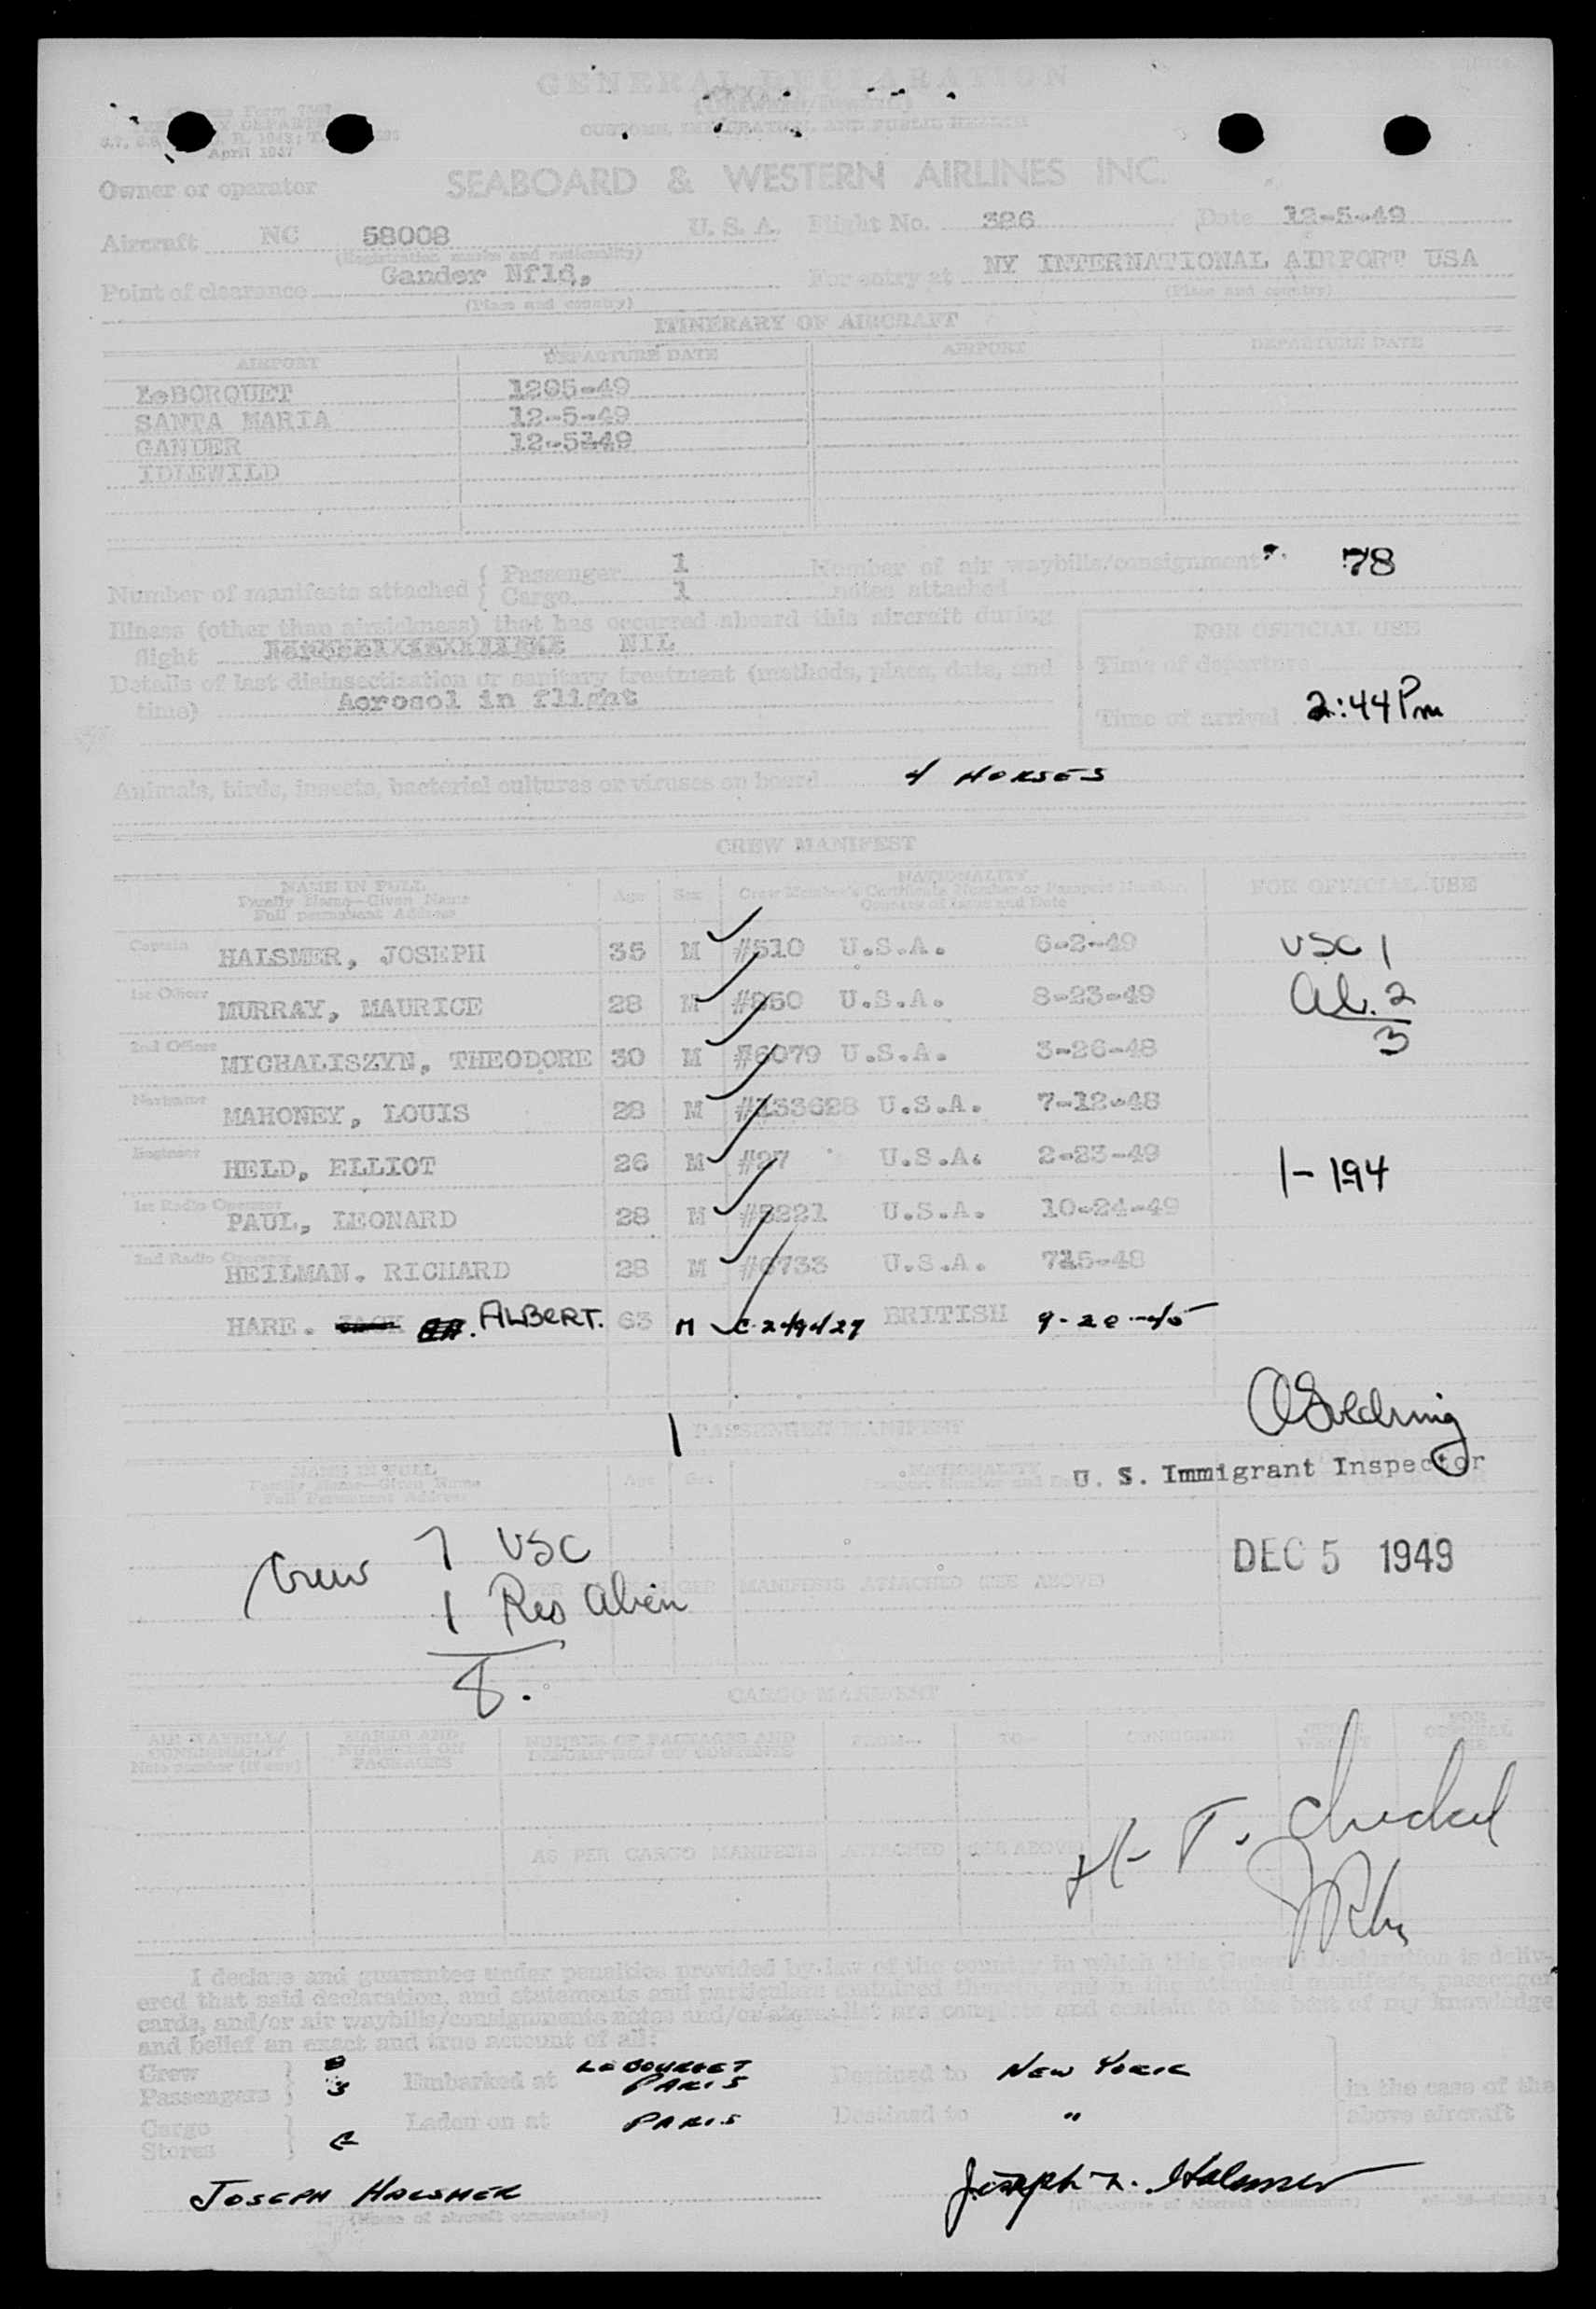 GENERAL DECLARATION
CUSTOMS, IMMIGRATION, AND PUBLIC HEALTH
April 1947
Owner or operator SEABOARD & WESTERN AIRLINES INC.
Aircraft NC 58008 U. S. A. Flight No. 326 Date 12-5-49
(Registration marks and nationality)
Point of clearance Gander Nfld, For entry at NY INTERNATIONAL AIRPORT USA
(Place and country) (Place and country)
ITINERARY OF AIRCRAFT
AIRPORT DEPARTURE DATE AIRPORT DEPARTURE DATE
LeBORQUET 1205-49
SANTA MARIA 12-5-49
GANDER 12-5149
IDLEWILD
Number of manifests attached { Passenger 1 Number of air waybills/consignment 78
Cargo 1 notes attached
Illness (other than airsickness) that has occurred aboard this aircraft during
flight NIL
FOR OFFICIAL USE
Time of departure
Details of last disinsectization or sanitary treatment (methods, place, date, and
time) Aerosol in flight
Time of arrival 2:44 Pm
Animals, birds, insects, bacterial cultures or viruses on board 4 HORSES
CREW MANIFEST
NAME IN FULL
Family Name—Given Name
Full permanent Address
Age Sex NATIONALITY
Crew Member's Certificate Number or Passport Number
Country of Issue and Date
FOR OFFICIAL USE
Captain HALSMER, JOSEPH 35 M #510 U.S.A. 6-2-49 USC 1
1st Officer MURRAY, MAURICE 28 M #860 U.S.A. 8-23-49 Al. 2
3
2nd Officer MICHALISZYN, THEODORE 30 M #6079 U.S.A. 3-26-48
Navigator MAHONEY, LOUIS 28 M #133628 U.S.A. 7-12-48
Engineer HELD, ELLIOT 26 M #27 U.S.A. 2-23-49 1-194
1st Radio Operator PAUL, LEONARD 28 M #5221 U.S.A. 10-24-49
2nd Radio Operator HEILMAN. RICHARD 28 M #6733 U.S.A. 715-48
HARE. ALBERT. 63 M C-249427 BRITISH 9-20-45
PASSENGER MANIFEST
NAME IN FULL
Family Name—Given Name
Full Permanent Address
Age Sex NATIONALITY
U. S. Immigrant Inspector
DEC 5 1949
Crew 7 USC
1 Res Alien
8.
PER PASSENGER MANIFESTS ATTACHED (SEE ABOVE)
CARGO MANIFEST
AIR WAYBILL/
CONSIGNMENT
Note number (if any)
MARKS AND
NUMBERS ON
PACKAGES
NUMBER OF PACKAGES AND
DESCRIPTION OF CONTENTS
FROM— TO— CONSIGNEE
GROSS
WEIGHT
FOR
OFFICIAL
USE
AS PER CARGO MANIFESTS ATTACHED (SEE ABOVE)
checked
I declare and guarantee under penalties provided by law of the country in which this General Declaration is deliv-
ered that said declaration, and statements and particulars contained therein and in the attached manifests, passenger
cards, and/or air waybills/consignments notes and/or stores list are complete and contain to the best of my knowledge
and belief an exact and true account of all:
Crew 8 Embarked at LE BOURGET Destined to NEW YORK
Passengers 3 PARIS in the case of the
Cargo Laden on at PARIS Destined to " above aircraft
Stores
JOSEPH HALSMER Joseph N. Halsmer
(Name of aircraft commander) (Signature of aircraft commander)